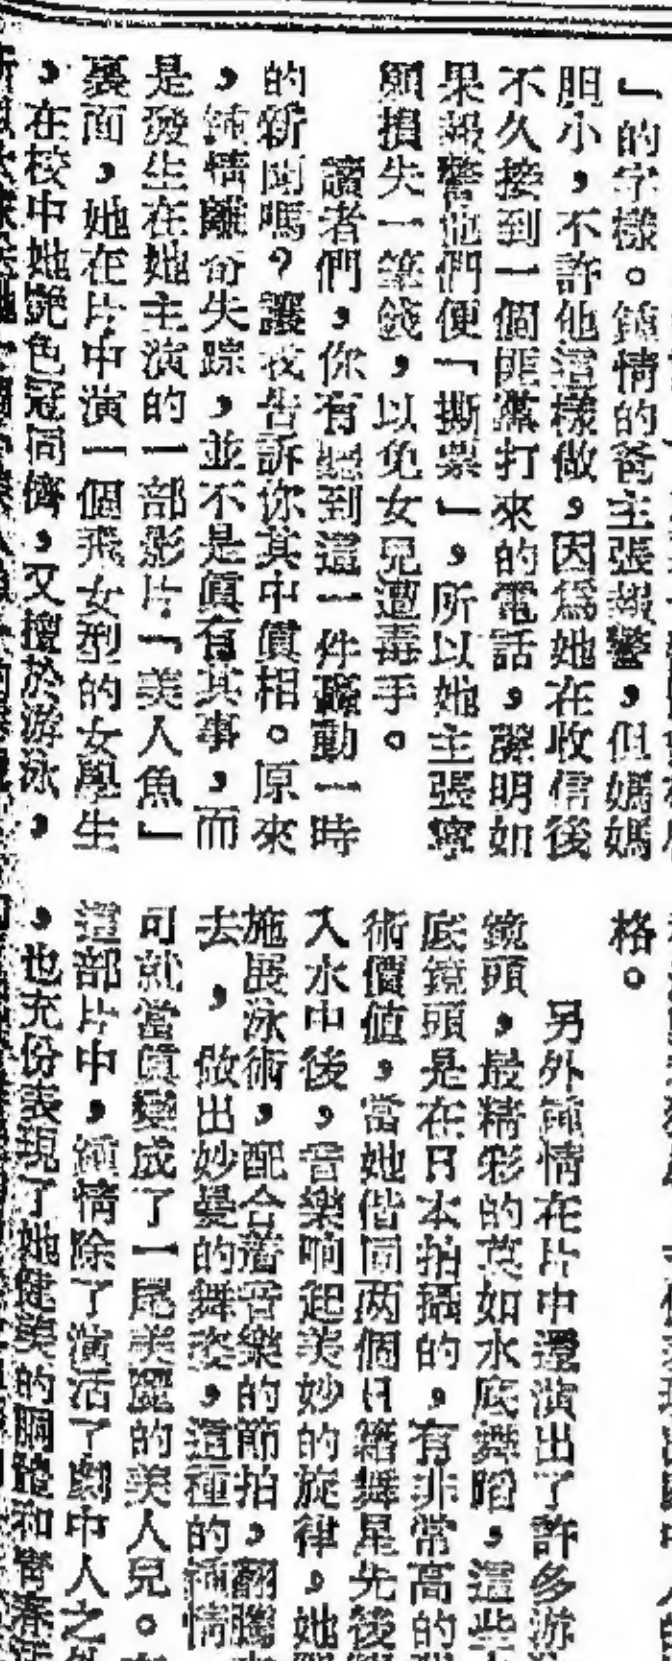 」的字樣。鍾情的爸主張報警,但媽媽
胆小,不許他這樣做,因爲她在收信後
不久接到一個匪黨打來的電話,說明如
果報警他們便「撕票」,所以她主張寧
願損失一筆錢,以免女兒遭毒手。
讀者們,你有聽到這一件轟動一時
的新聞嗎?讓我告訴你其中眞相。原來
,鍾情離奇失踪,並不是眞有其事,而
是發生在她主演的一部影片「美人魚」
裏面,她在片中演一個飛女型的女學生
,在校中她艷色冠同儕,又擅於游泳,
格。
另外鍾情在片中還演出了許多游
鏡頭,最精彩的莫如水底舞蹈,這些
底鏡頭是在日本拍攝的,有非常高的
術價值,當她偕同两個日籍舞星先後
入水中後,音樂响起美妙的旋律,她
施展泳術,配合着音樂的節拍,翻騰
去,做出妙曼的舞姿,這種的鍾情
可就當眞變成了一尾美麗的美人兒。
這部片中,鍾情除了演活了劇中人之外
,也充份表現了她健美的胴體和青春